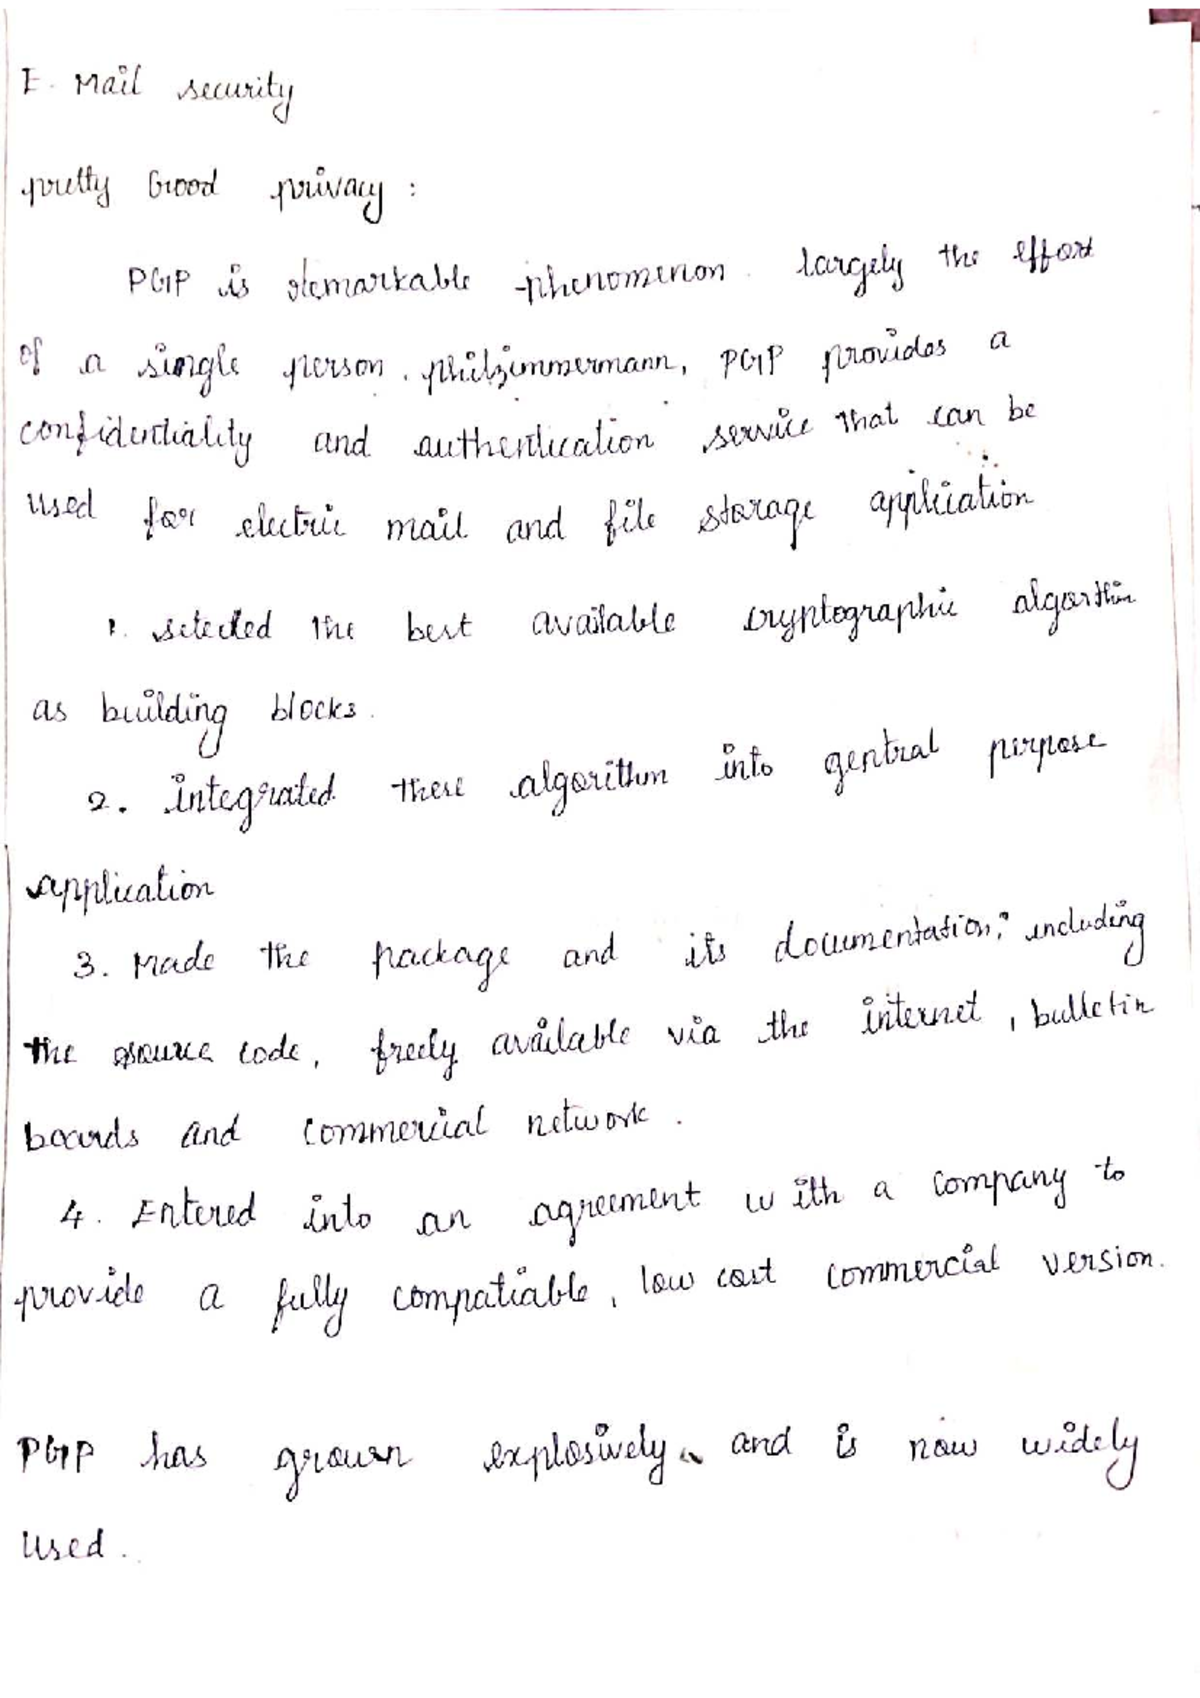 E. Mail security
pretty Good privacy :
PGP is remarkable phenomenon. largely the effort
of a single person, philzimmermann, PGP provides a
confidentiality and authentication service that can be
used for electric mail and file storage application
1. selected the best available cryptographic algorithm
as building blocks.
2. integrated these algorithm into gentral perpose
application
3. Made the package and its documentation, including
the source code, freely available via the internet, bulletin
boards and commercial network.
4. Entered into an agreement with a company to
provide a fully compatiable, low cost commercial version.
PGP has grown explosively and is now widely
used.